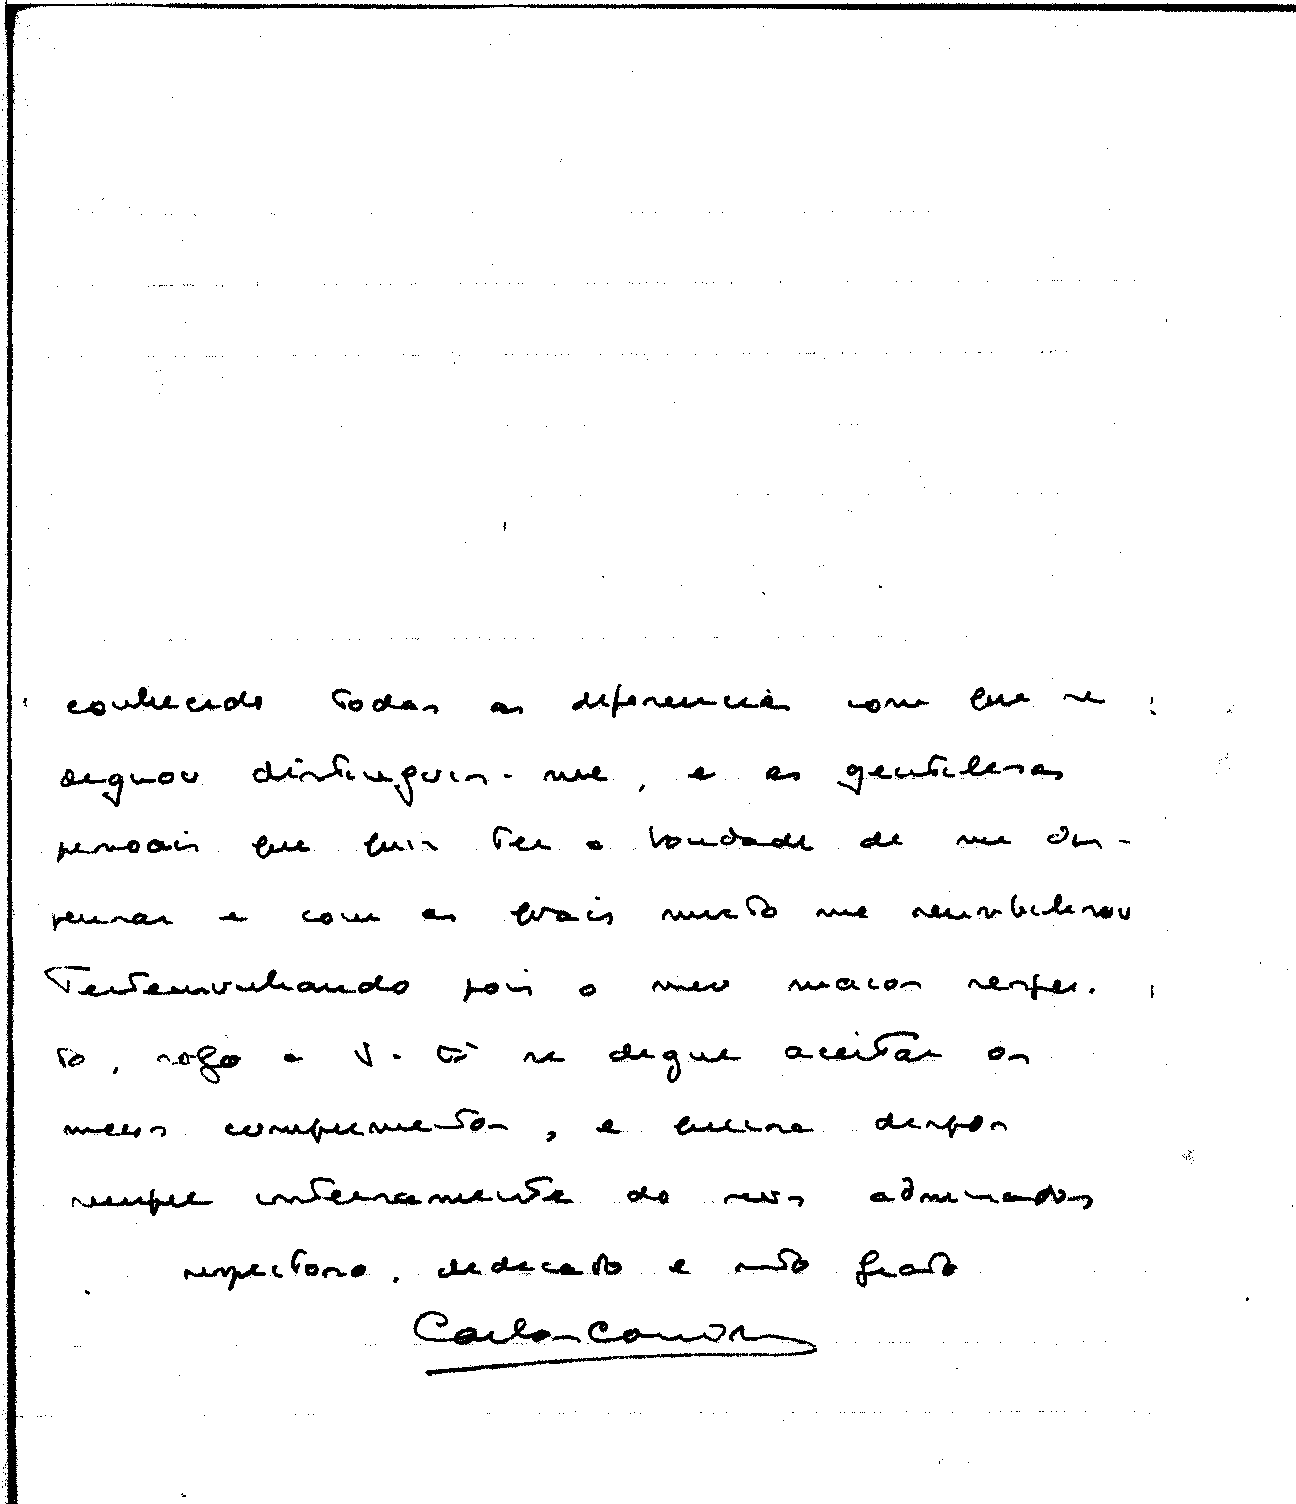 conhecido todas as diferencias com que se
dignou distinguir-me, e as gentilesas
pessoais que quis ter a bondade de me dis-
pensar e com as quais muito me sensibilisou
Testemunhando pois o meu maior respei-
to, rogo a V. Exª se digne aceitar os
meus cumprimentos, e queira dispor
sempre inteiramente do seu admirador
respeitoso, dedicado e mto grato
Carlos